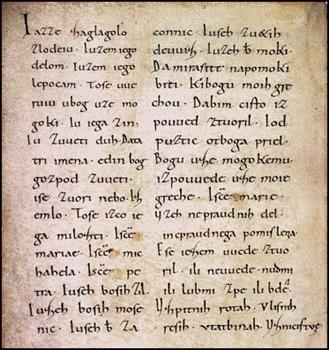 Iazze zaglagolo
zlodeiu. I uzem iego
delom. I uzem iego
lepocam. Tose uue
ruiu ubog uze mo
goki. I u iega zin.
I u zuueti duh. Da ta
tri imena. edin bog
gozpod zuueti.
ise zuori nebo. I z
emlo. Tose izco ie
ga milozti. I scē
mariae. I scē mic
hahela. I scē pe
tra. I useh bosih zil.
I uzeh bosih mose
nic. I useh b za
connic. I useh zuetih
deuuiz. I uzeh b moki.
Da mi rasite na pomoki
biti. Ki bogu moih gre
chou. Da bim cisto iz
pouued ztuoril. I od
puztic otboga priel.
Bogu uze mogokemu
izpouuede uze moie
greche. I scē marie.
uzeh nepraudnih del.
inepraudnega pomislena.
Ese iezem uuede ztuo
ril. ili neuuede. nudmi
ili lubmi zpe ili bdē.
Uzpitnih rotah. Ulisnih
resih. Vtatbinah. Uznicistve